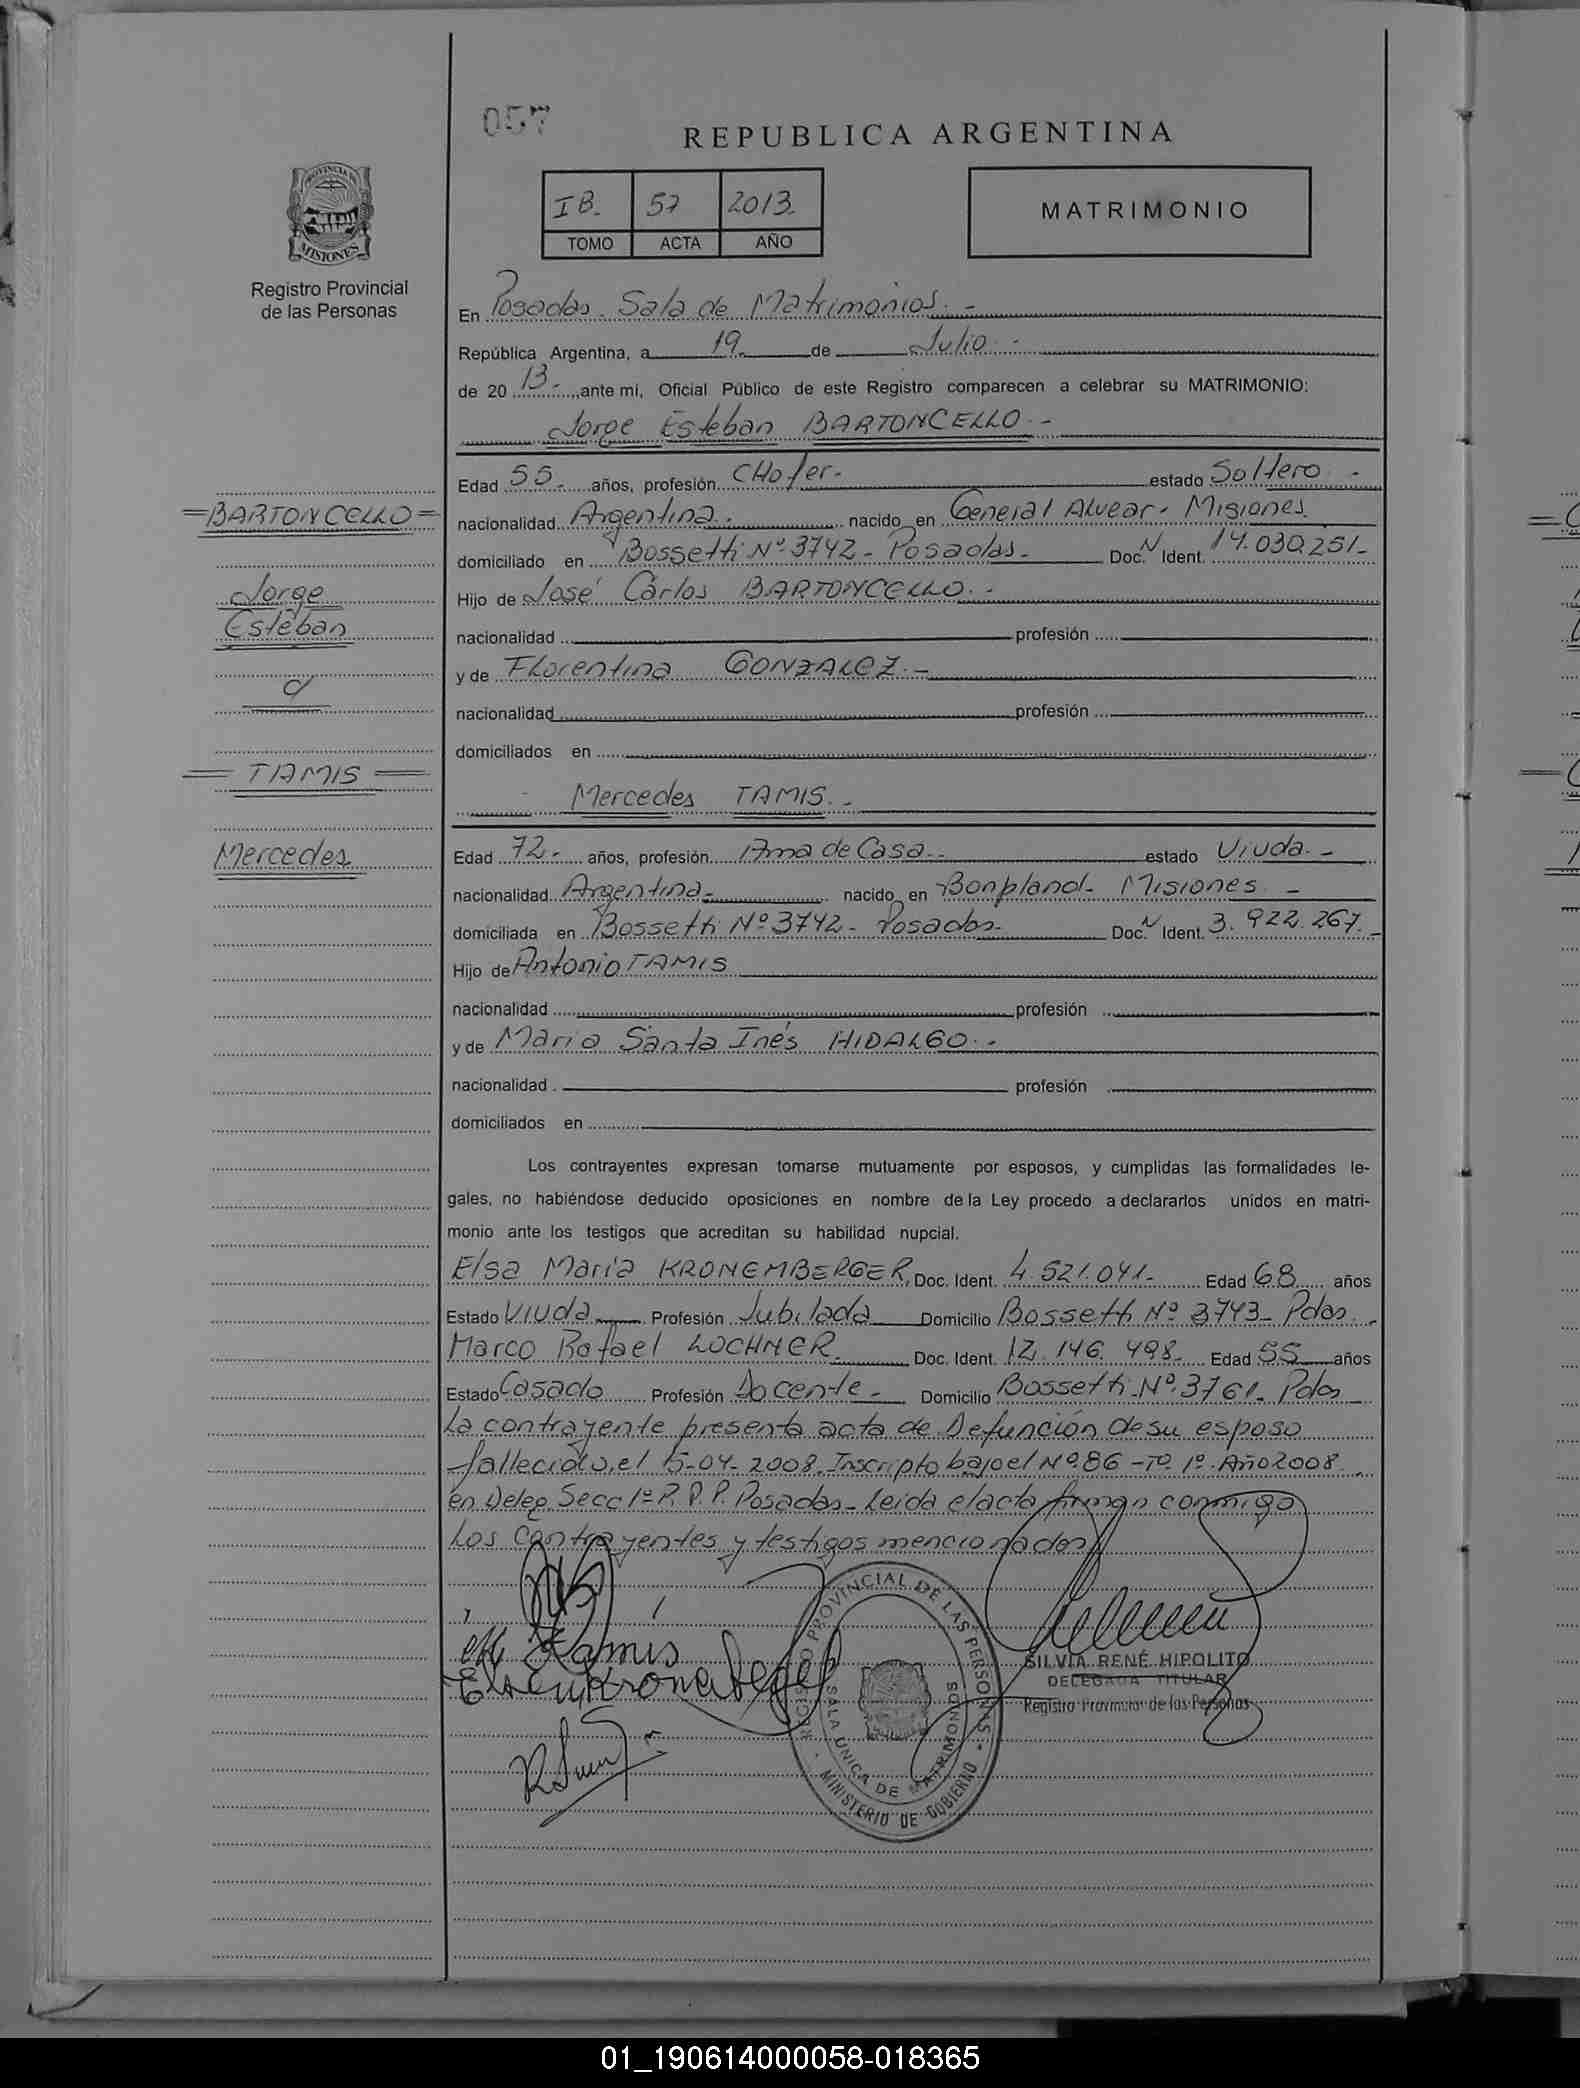 057
REPUBLICA ARGENTINA
PROVINCIA DE
MISIONES
Registro Provincial
de las Personas
IB. 57 2013.
TOMO ACTA AÑO
MATRIMONIO
En Posadas. Sala de Matrimonios. -
República Argentina, a 19. de Julio. -
de 20 13.- ,ante mí, Oficial Público de este Registro comparecen a celebrar su MATRIMONIO:
Jorge Esteban BARTONCELLO. -
Edad 55.- años, profesión CHofer.- estado Soltero. -
nacionalidad Argentina. - nacido en General Alvear. Misiones.
domiciliado en Bossetti Nº 3742 - Posadas. - Doc. N Ident. 14.030.251-
Hijo de José Carlos BARTONCELLO. -
nacionalidad profesión
y de Florentina GONZALEZ. -
nacionalidad profesión
domiciliados en
Mercedes TAMIS. -
Edad 72.- años, profesión Ama de Casa.. estado Viuda. -
nacionalidad Argentina.- nacido en Bonpland- Misiones -
domiciliada en Bossetti Nº 3742 - Posadas.- Doc. N Ident. 3.922.267.-
Hijo de Antonio TAMIS
nacionalidad profesión
y de Maria Santa Inés HIDALGO. -
nacionalidad profesión
domiciliados en
=BARTONCELLO=
Jorge
Esteban
c/
= TAMIS =
Mercedes
Los contrayentes expresan tomarse mutuamente por esposos, y cumplidas las formalidades le-
gales, no habiéndose deducido oposiciones en nombre de la Ley procedo a declararlos unidos en matri-
monio ante los testigos que acreditan su habilidad nupcial.
Elsa María KRONEMBERGER. Doc. Ident. 4.521.041- Edad 68 años
Estado Viuda Profesión Jubilada Domicilio Bossetti Nº 3743- Pdas. -
Marco Rafael LOCHNER. Doc. Ident. 12.146.498- Edad 55 años
Estado Casado Profesión Docente- Domicilio Bossetti Nº 3761- Pdas
La contrayente presenta acta de Defunción de su esposo
fallecido, el 15-04-2008. Inscripto bajo el Nº 86 - Tº 1º- Año 2008.
en Deleg. Secc 1ª R.P.P. Posadas- Leida el acta firman conmigo
Los contrayentes y testigos mencionados
Tamis
REGISTRO PROVINCIAL DE LAS PERSONAS
SALA UNICA DE MATRIMONIOS
MINISTERIO DE GOBIERNO
SILVIA RENÉ HIPOLITO
DELEGADA TITULAR
Registro Provincial de las Personas
01_190614000058-018365